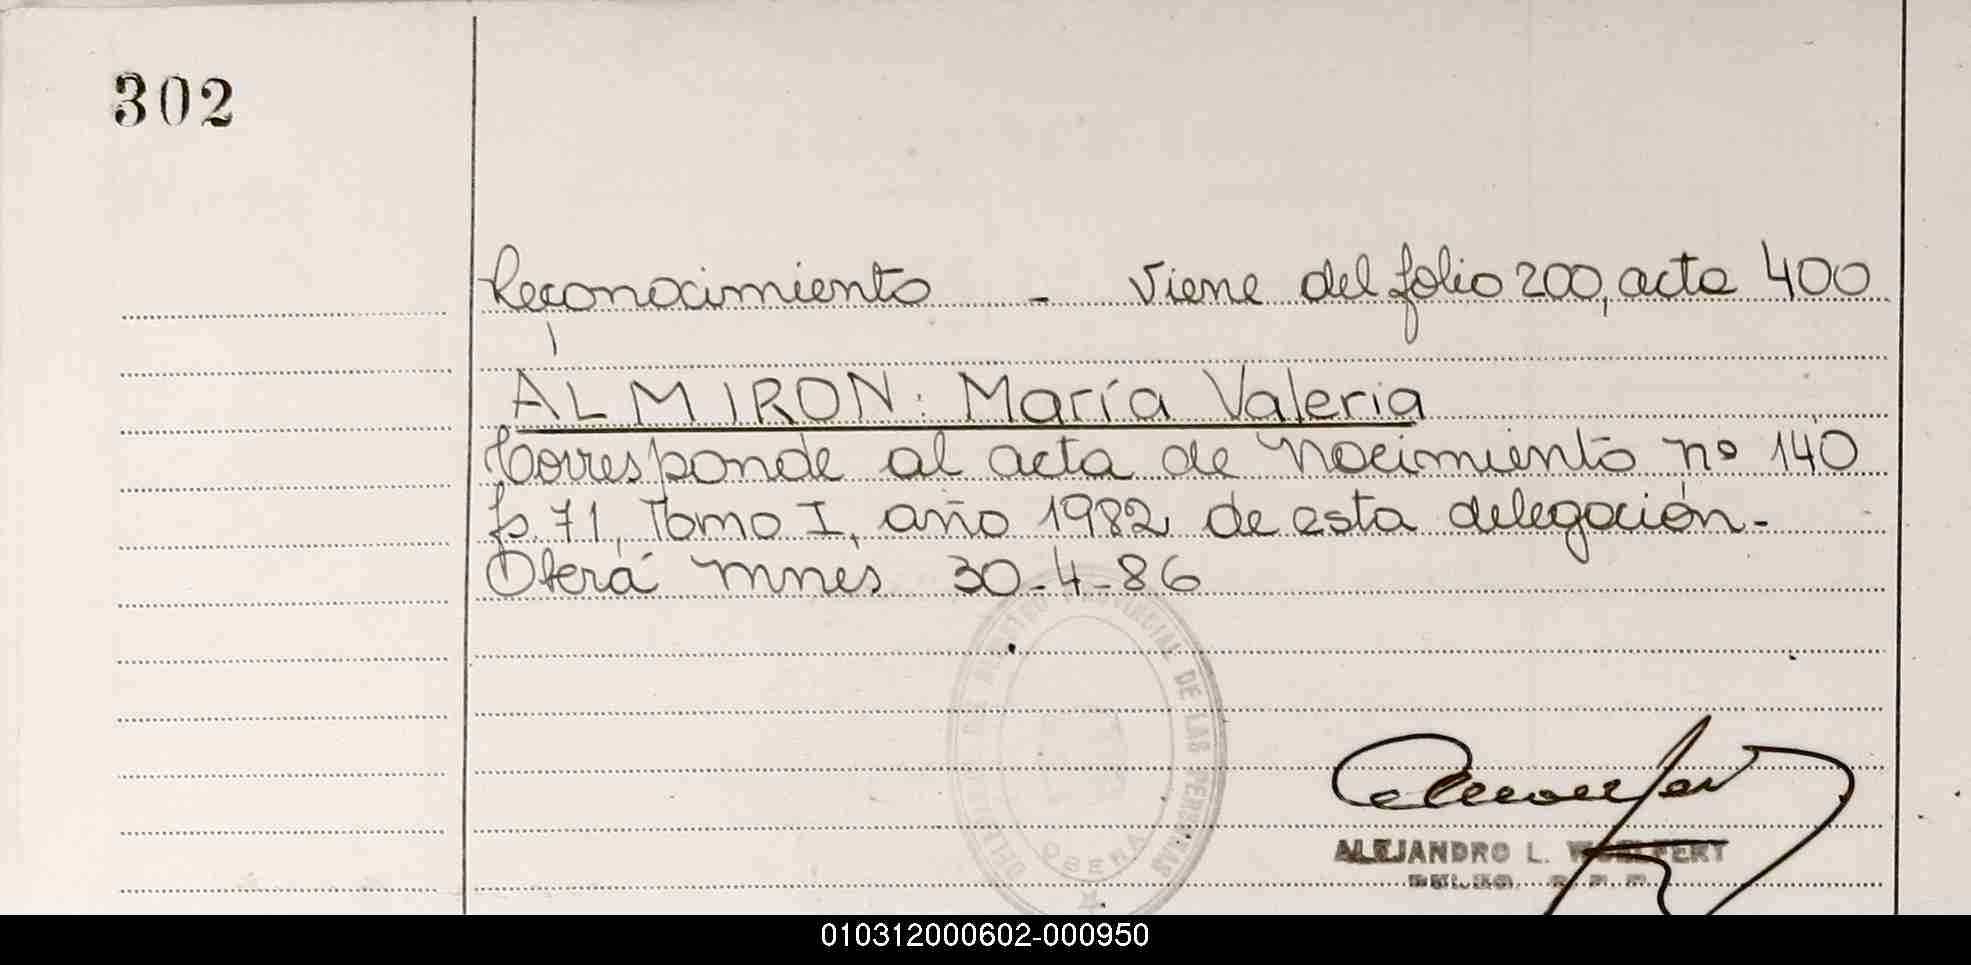 302
Reconocimiento - Viene del folio 200, acta 400
ALMIRON: María Valeria
Corresponde al acta de nacimiento nº 140
fs. 71, Tomo I, año 1982 de esta delegación.-
Oberá mnes 30-4-86
PROVINCIAL DE LAS PERSONAS
OBERA
ALEJANDRO L.
010312000602-000950